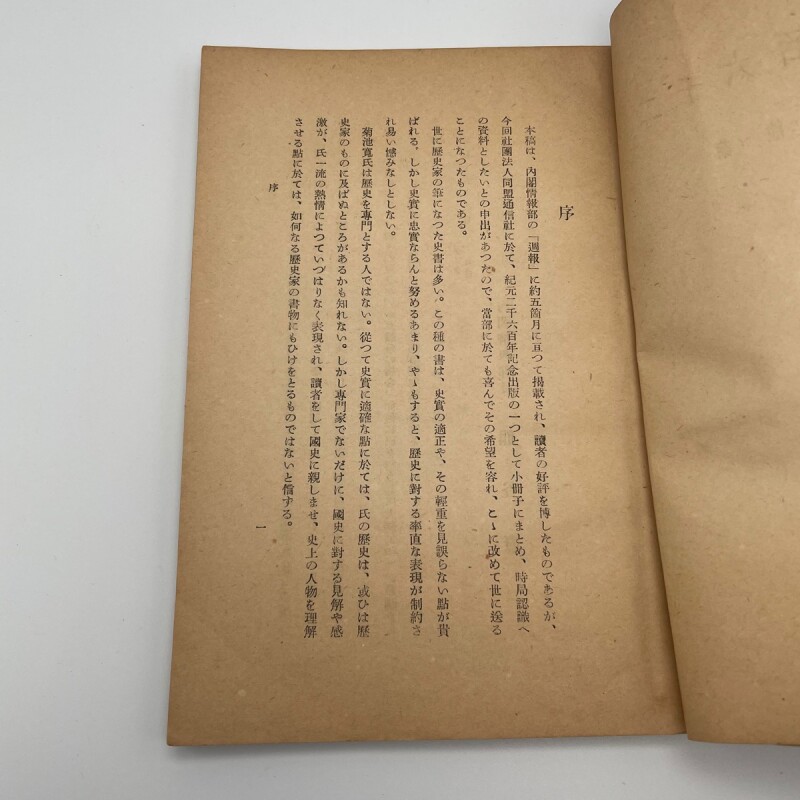 序
本稿は、內閣情報部の「週報」に約五箇月に亘つて揭載され、讀者の好評を博したものであるが、
今回社團法人同盟通信社に於て、紀元二千六百年記念出版の一つとして小冊子にまとめ、時局認識へ
の資料としたいとの申出があつたので、當部に於ても喜んでその希望を容れ、こゝに改めて世に送る
ことになつたものである。
世に歷史家の筆になつた史書は多い。この種の書は、史實の適正や、その輕重を見誤らない點が貴
ばれる。しかし史實に忠實ならんと努めるあまり、やゝもすると、歷史に對する率直な表現が制約さ
れ易い憾みなしとしない。
菊池寬氏は歷史を專門とする人ではない。從つて史實に適確な點に於ては、氏の歷史は、或ひは歷
史家のものに及ばぬところがあるかも知れない。しかし專門家でないだけに、國史に對する見解や感
激が、氏一流の熱情によつていつはりなく表現され、讀者をして國史に親しませ、史上の人物を理解
させる點に於ては、如何なる歷史家の書物にもひけをとるものではないと信する。
序
一